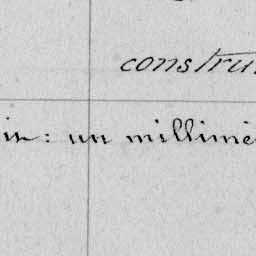 constru
in: un millimè